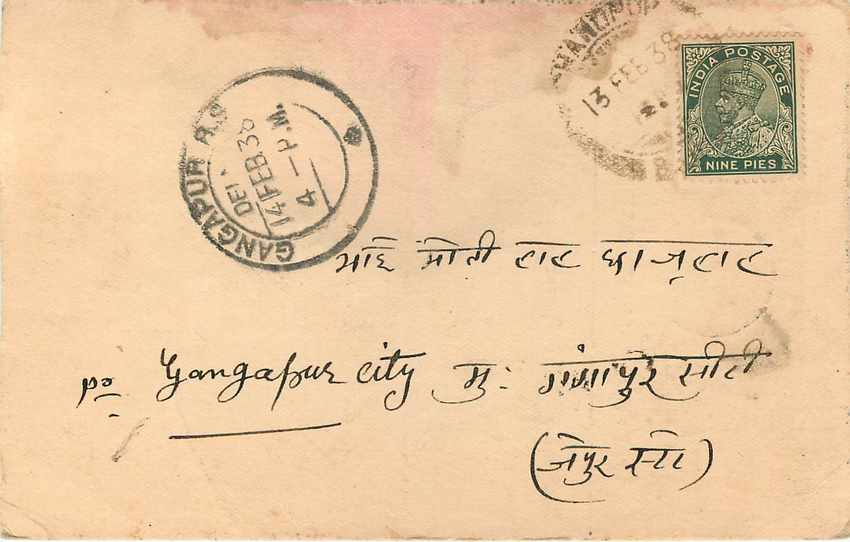 13 FEB 38
INDIA POSTAGE
NINE PIES
GANGAPUR R.S
DEL
14 FEB.38
4 — P.M.
भाई मोती लाल
Po Gangapur city मु: गंगापुर सीटी
(जेपुर स्टेट)